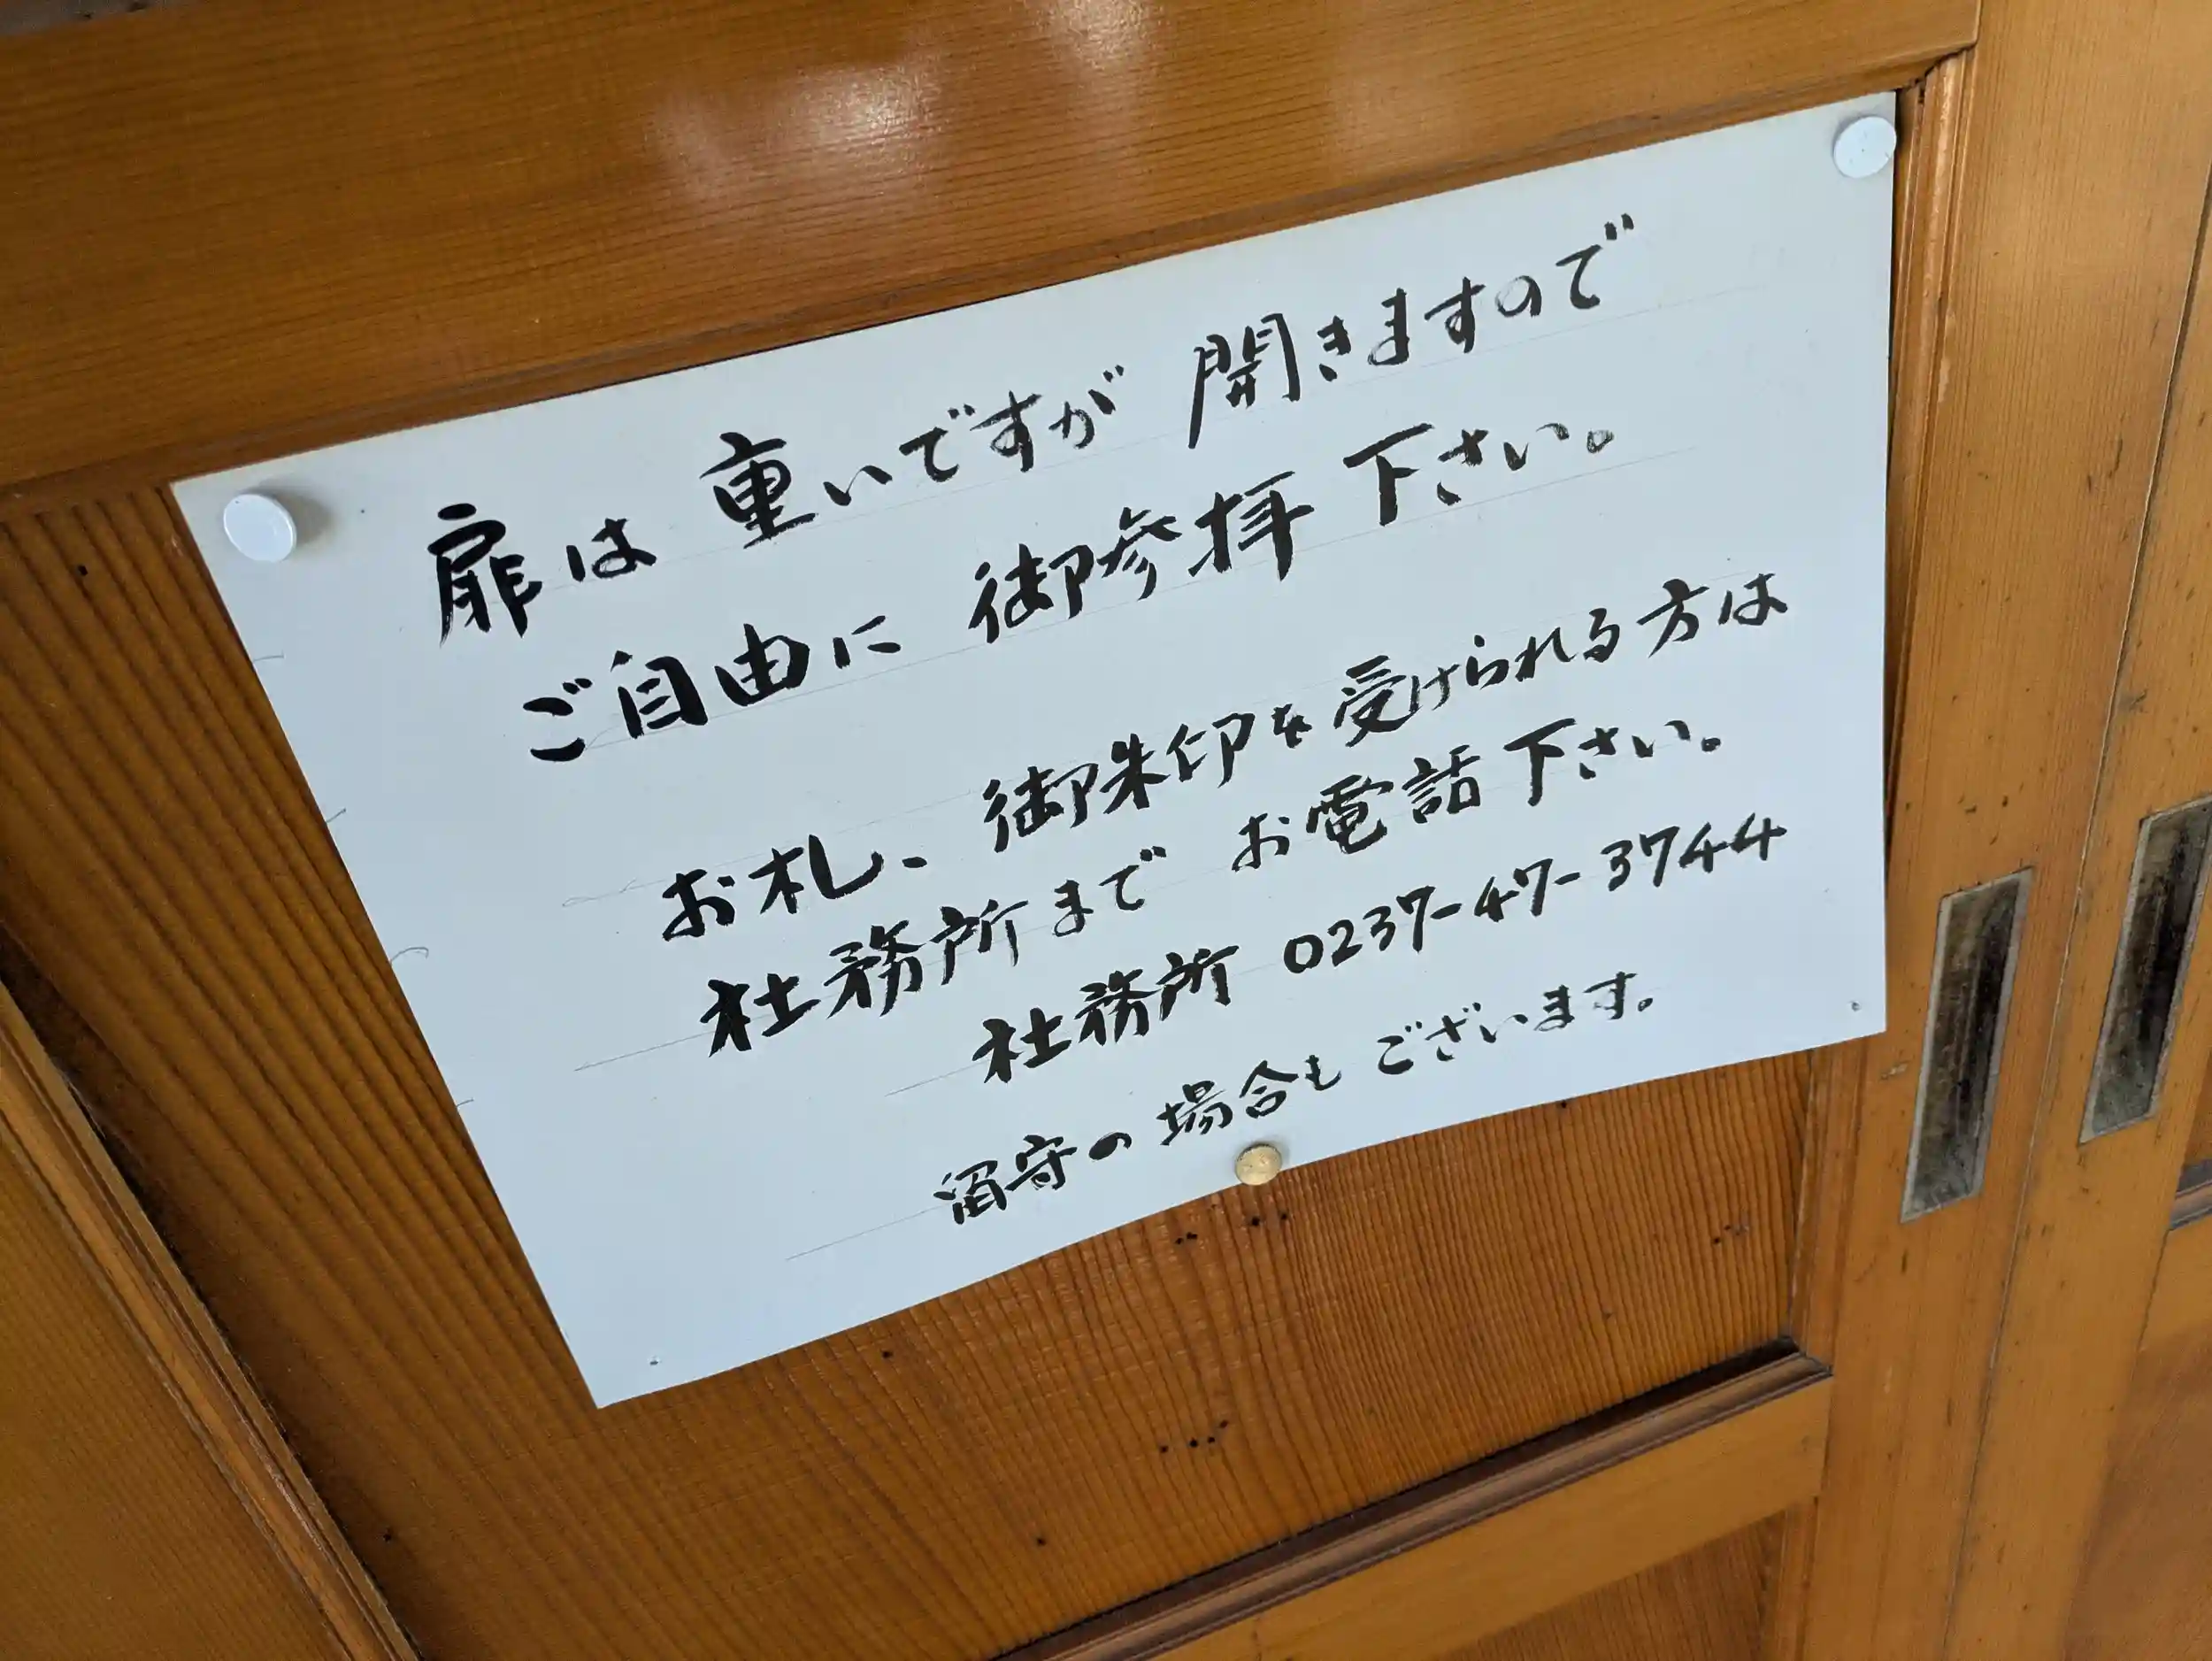 扉は重いですが 開きますので
ご自由に 御参拝 下さい。
お札、御朱印を受けられる方は
社務所まで お電話 下さい。
社務所 0237-47-3744
留守の場合も ございます。